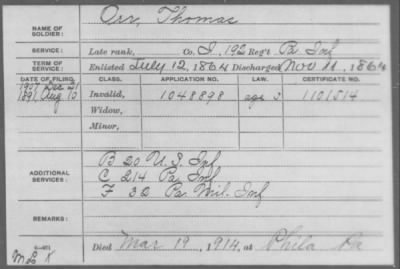 NAME OF SOLDIER: Orr, Thomas
SERVICE: Late rank, Co. I, 192 Reg't Pa Inf
TERM OF SERVICE: Enlisted July 12, 1864 Discharged Nov 11, 1864
DATE OF FILING. CLASS. APPLICATION NO. LAW. CERTIFICATE NO.
1907 Dec 21
1891, Aug 10 Invalid, 1048898 3 1101514
Widow,
Minor,
ADDITIONAL SERVICES:
B 20 U.S. Inf
C 214 Pa Inf
F 32 Pa Mil. Inf
REMARKS:
Died Mar 19, 1914, at Phila Pa